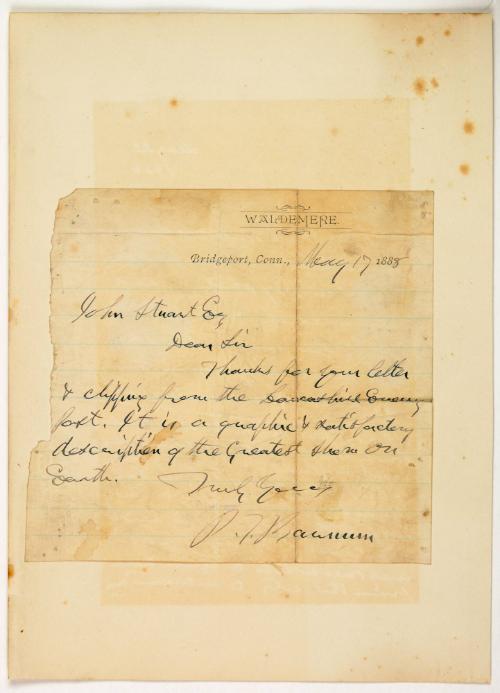 WALDEMERE.
Bridgeport, Conn., May 17 1888
John Stuart Esq
Dear Sir
Thanks for your letter
& clipping from the Lancashire Evening
Post. It is a graphic & satisfactory
description of the Greatest Show On
Earth.
Truly Yours
P. T. Barnum